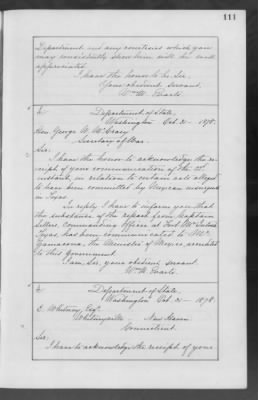 111
Department and any courtesies which you
may consistently show him will be much
appreciated.
I have the honor to be, Sir,
Your obedient servant,
Wm. M. Evarts.
Department of State,
Washington Oct. 21 - 1878.
Hon. George W. McCrary
Secretary of War.
Sir:
I have the honor to acknowledge the re-
ceipt of your communication of the
instant, in relation to certain acts alleged
to have been committed by Mexican
in Texas.
In reply I have to inform you that
the substance of the report from Captain
Sellers, Commanding Officer at Fort McIntosh
Texas, has been communicated to Mr.
Zamacona, the Minister of Mexico, accredited
to this Government.
I am, Sir, your obedient servant,
Wm. M. Evarts.
Department of State,
Washington Oct. 21 - 1878.
E. Whitney, Esq.
Whitneyville - New Haven
Connecticut.
Sir:
I have to acknowledge the receipt of your